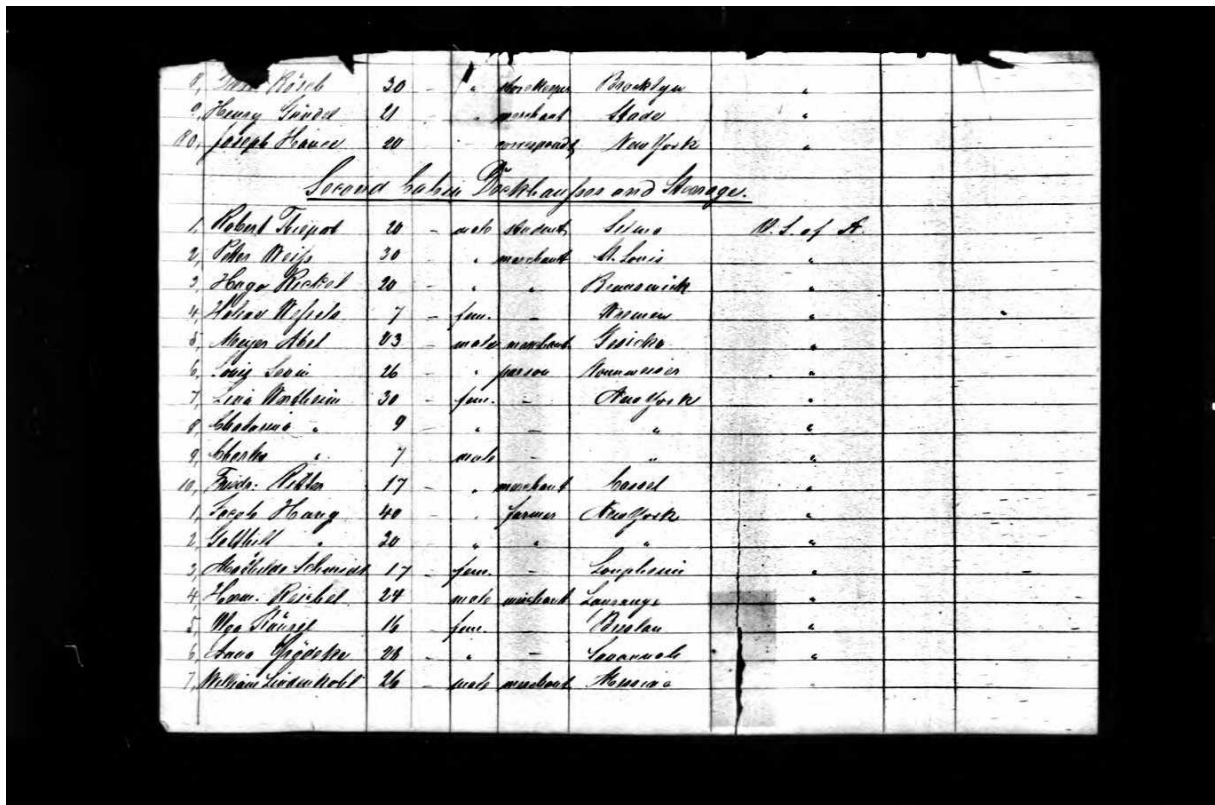 8, Röseb 30 - " storekeeper Brooklyn "
9, Henry Gündel 21 - " merchant Stade "
80, Joseph 20 " New York "
Second Cabin Deckhauser and Steerage.
1, Robert 20 - male student Selma U. S. of A.
2, Peter Weiss 30 " merchant St. Louis "
3, Hugo Rickel 20 - " " Brunswick "
4, Wessels 7 - fem. - Bremen "
5, Meyer Abel 23 - male merchant "
6, Louis Levin 26 " "
7, Lina Wertheim 30 - fem. - New York "
8, Chatarina " 9 - " - " "
9, Charles " 7 male - " "
10, Friedr. Ritter 17 - " merchant Cassel "
1, Jacob Haug 40 " farmer New York "
2, " 30 " " " "
3, Mathilde Schmidt 17 - fem. - Laupheim "
4, Herm. Reichel 24 male merchant "
5, 16 - fem. - Breslau "
6, Anna 28 - " - Savannah "
7, William Lindenkohl 26 - male merchant "